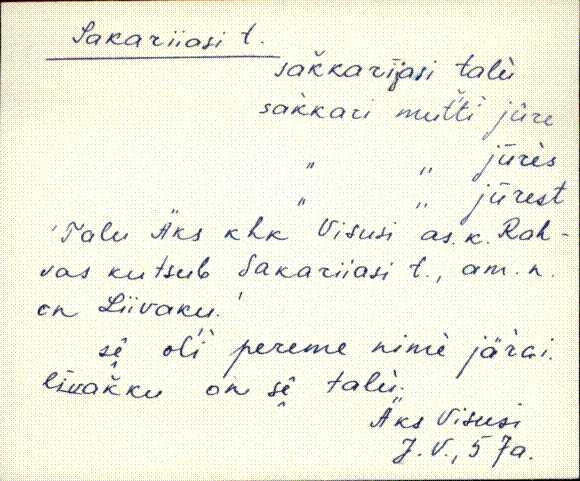 Sakariiasi t.
sak̆karījasi talù
sàkkari mut̆ti jūre
" " jūrès
" " jūrest
'Talu Äks khk Visusi as. k. Rah-
vas kutsub Sakariiasi t., am. n.
on Liivaku.'
sê̬ oĺi pereme nimè järai.
līvak̆ku on sê̬ talù.
Äks Visusi
J. V., 57a.